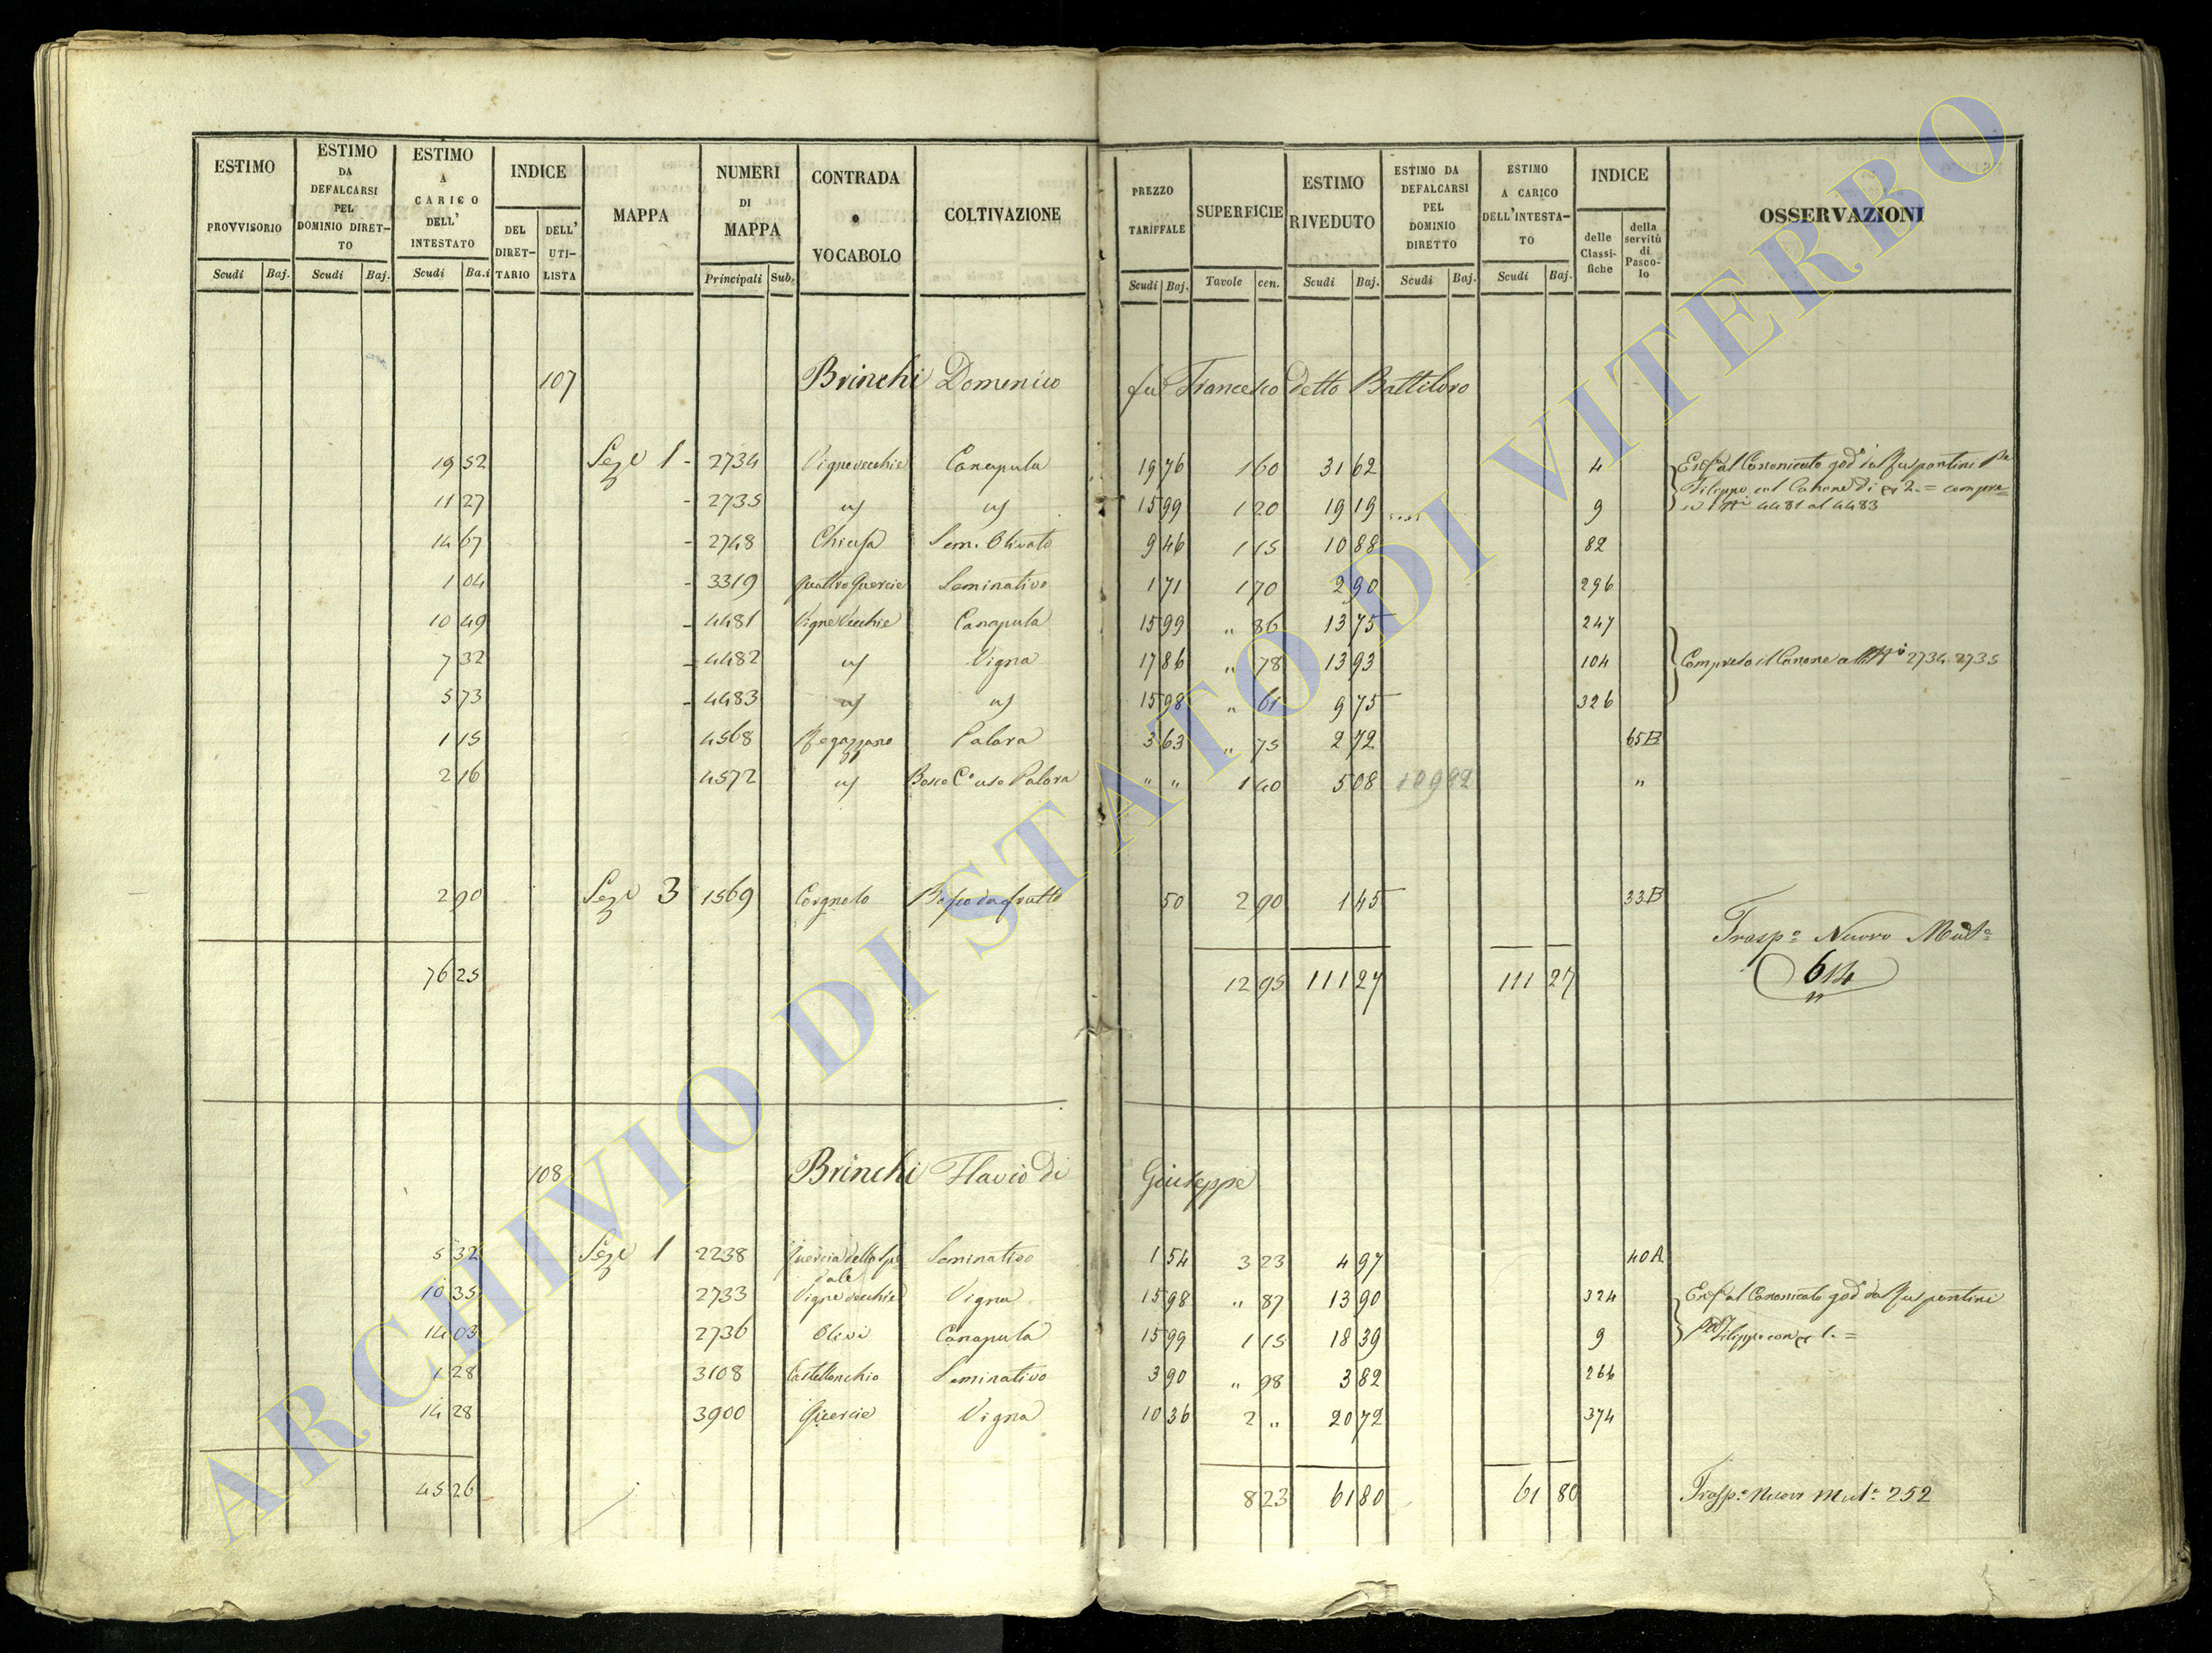 ESTIMO PROVVISORIO | ESTIMO DA DEFALCARSI PEL DOMINIO DIRETTO | ESTIMO A CARICO DELL' INTESTATO | INDICE | MAPPA | NUMERI DI MAPPA | CONTRADA o VOCABOLO | COLTIVAZIONE | PREZZO TARIFFALE | SUPERFICIE | ESTIMO RIVEDUTO | ESTIMO DA DEFALCARSI PEL DOMINIO DIRETTO | ESTIMO A CARICO DELL'INTESTATO | INDICE | OSSERVAZIONI
DEL DIRETTARIO | DELL' UTILISTA | delle Classifiche | della servitù di Pascolo
Scudi | Baj. | Scudi | Baj. | Scudi | Ba.i | Principali | Sub. | Scudi | Baj. | Tavole | cen. | Scudi | Baj. | Scudi | Baj. | Scudi | Baj.
107 Brinchi Domenico fu Francesco detto Battiloro
19 52 Seze 1 - 2734 Vignevecchie Canapula 19 76 1 60 31 62 4 Enfa al Canonicato god° dal
11 27 - 2735 " " 15 99 1 20 19 19 .... 9 Filippo col Canone di 2.= compre=
4481 al 4483
14 67 - 2748 Chiusa Sem. Olivato 9 46 1 15 10 88 82
1 04 - 3319 Quattro Quercie Seminativo 1 71 1 70 2 90 296
10 49 - 4481 Vigne Vecchie Canapula 15 99 " 86 13 75 247
7 32 - 4482 " Vigna 17 86 " 78 13 93 104 Compreso il Canone a 2734. 2735
5 73 - 4483 " " 15 98 " 61 9 75 326
1 15 4568 Palara 3 63 " 75 2 72 65B
2 16 4572 " Bosco C° uso Palara " " 1 40 5 08 109 92 "
2 90 Seze 3 1569 Corgnolo Bosco da frutto 50 2 90 1 45 33B
Trasp° Nuovo Mut°
614
76 25 12 95 111 27 111 27
108 Brinchi Flavio di Giuseppe
5 32 Seze 1 2238 Quercia dello Spe Seminativo 1 54 3 23 4 97 40A
dale
10 35 2733 Vigne vecchie Vigna 15 98 " 87 13 90 324 Enfa al Canonicato god° dal
14 03 2736 Olivi Canapula 15 99 1 15 18 39 9 Filippo con 1.=
1 28 3108 Castellonchio Seminativo 3 90 " 98 3 82 264
14 28 3900 Quercie Vigna 10 36 2 " 20 72 374
45 26 8 23 61 80 61 80 Trasp° Nuovo Mut° 252
ARCHIVIO DI STATO DI VITERBO